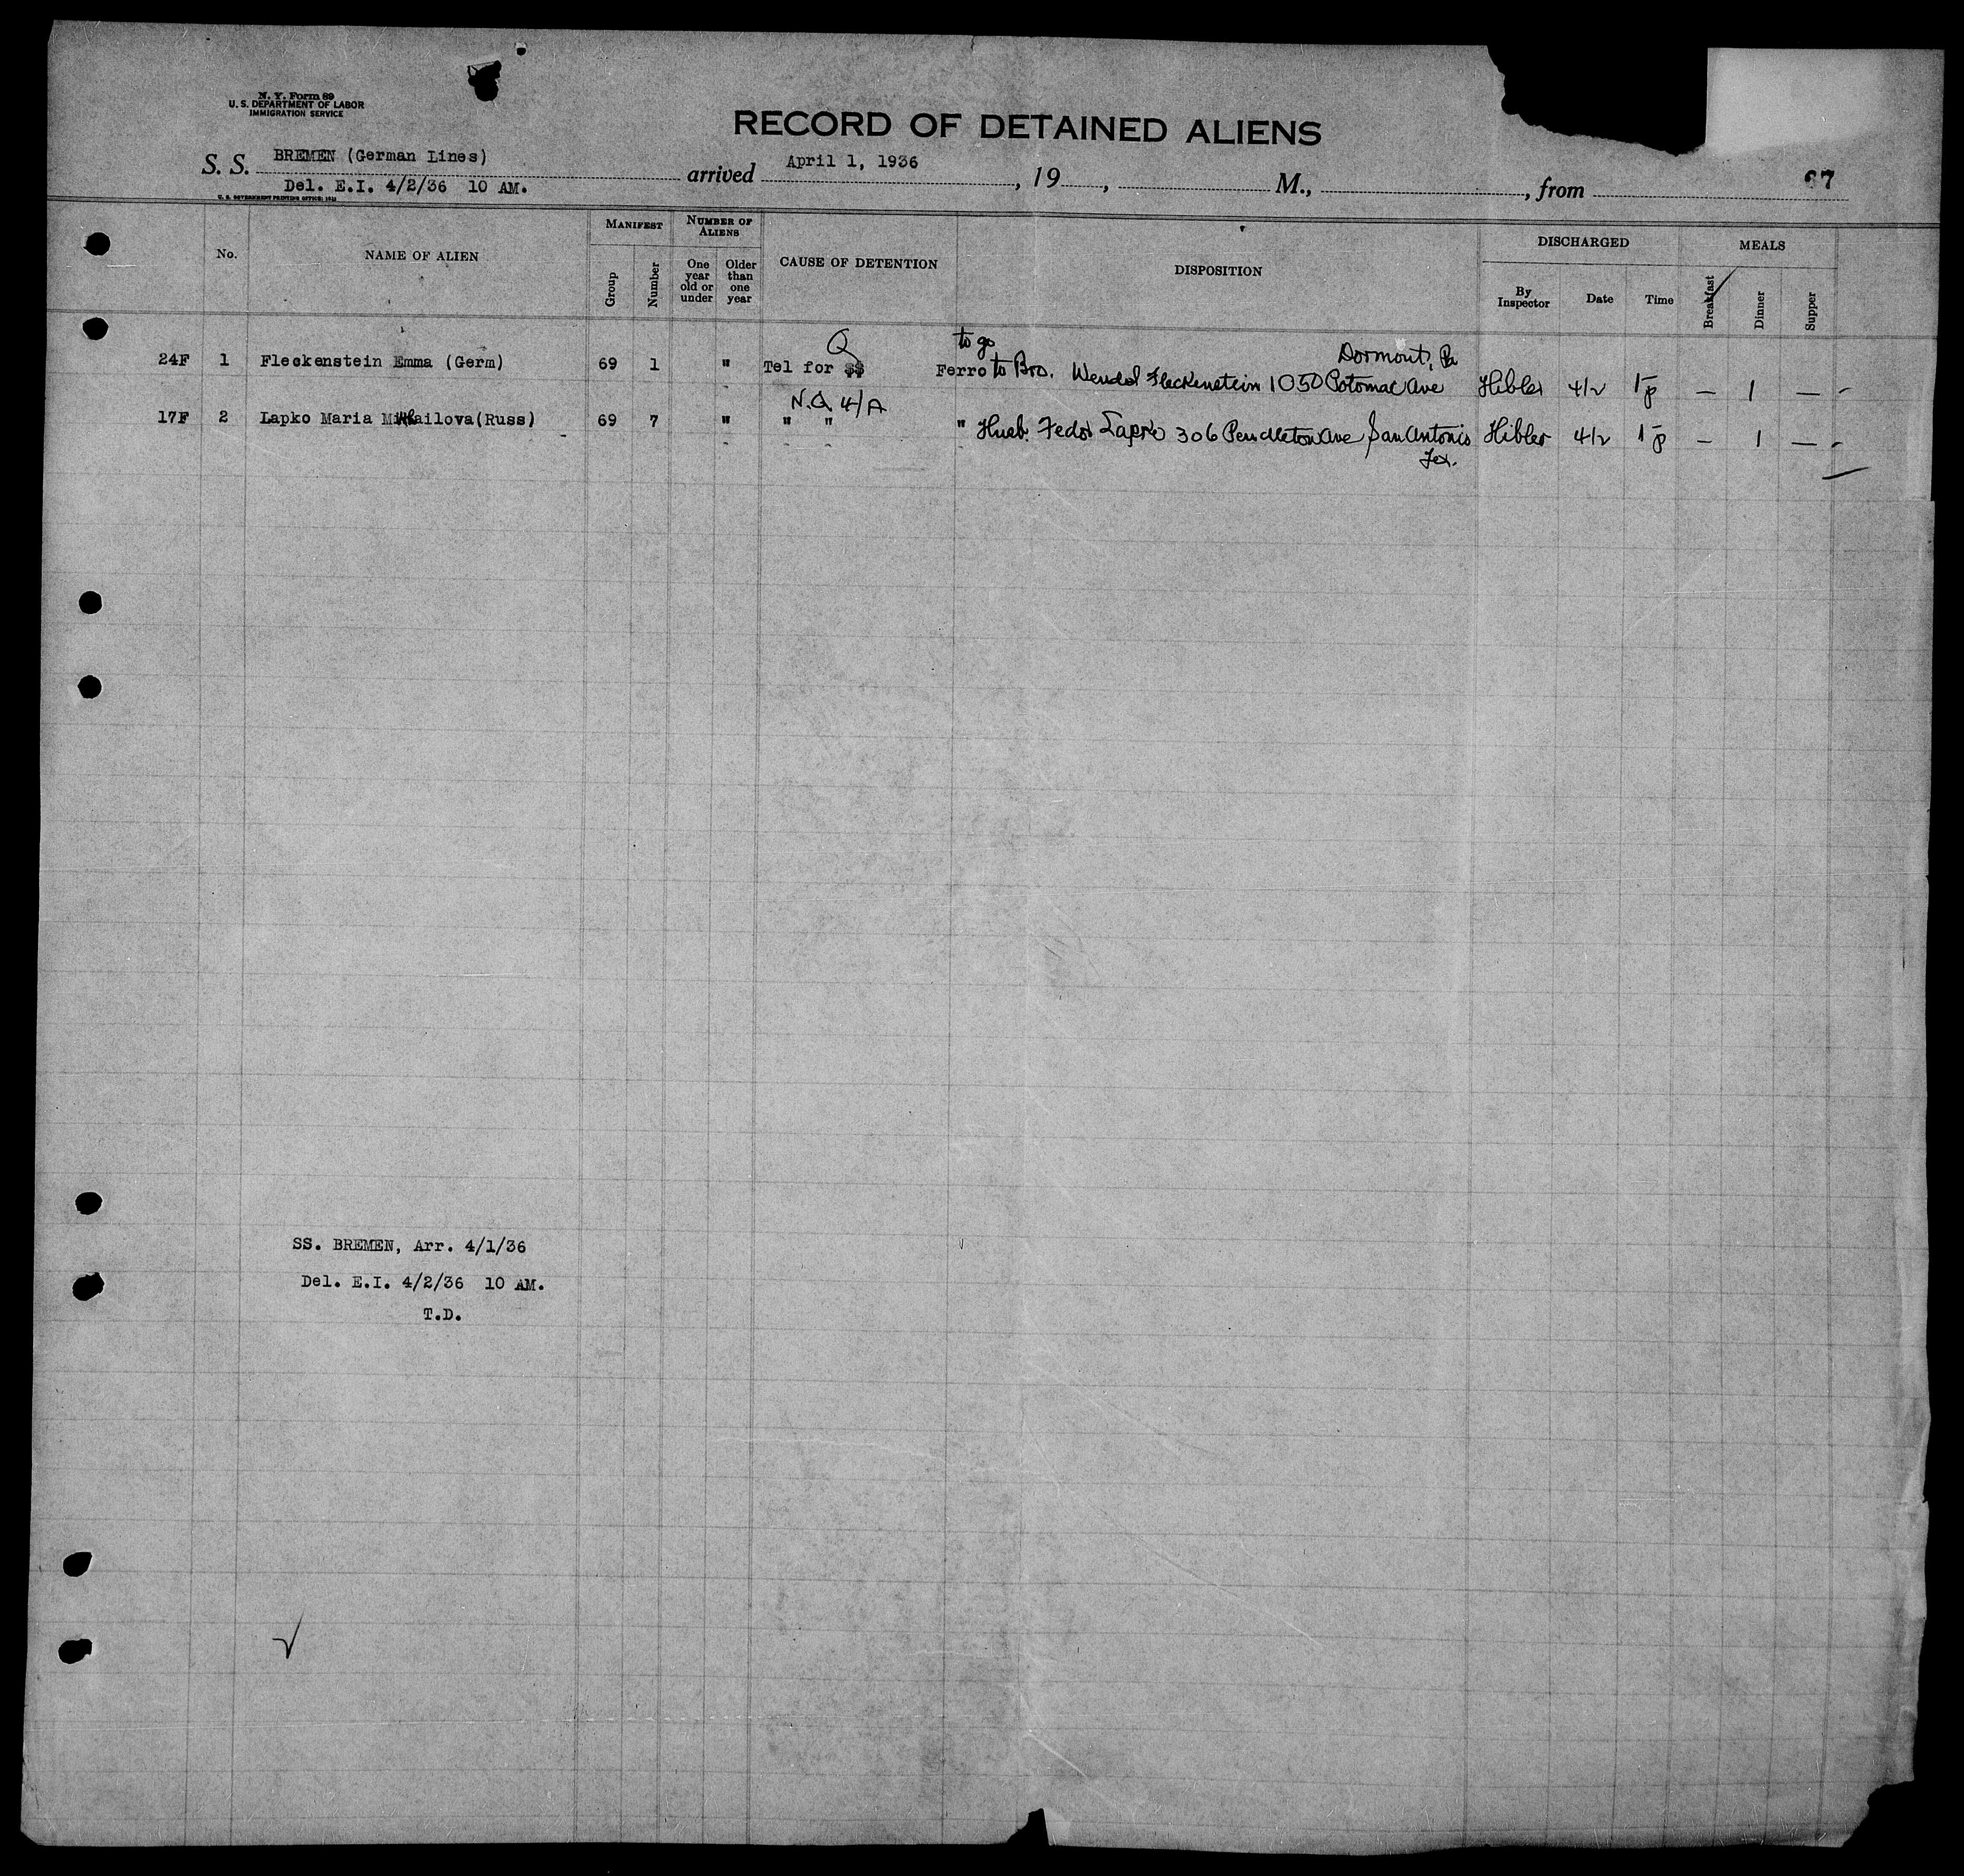 N. Y. Form 89
U. S. DEPARTMENT OF LABOR
IMMIGRATION SERVICE
RECORD OF DETAINED ALIENS
S. S. BREMEN (German Lines) arrived April 1, 1936, 19 , M., , from 67
Del. E.I. 4/2/36 10 AM.
U. S. GOVERNMENT PRINTING OFFICE:
No. NAME OF ALIEN MANIFEST NUMBER OF ALIENS CAUSE OF DETENTION DISPOSITION DISCHARGED MEALS
Group Number One year old or under Older than one year By Inspector Date Time Breakfast Dinner Supper
Q to go Dormont, Pa
24F 1 Fleckenstein Emma (Germ) 69 1 " Tel for $$ Ferro to Bro. Wendel Fleckenstein 1050 Potomac Ave Hibler 4/2 1p — 1 —
N.Q. 4/A
17F 2 Lapko Maria Mikhailova(Russ) 69 7 " " " " Husb. Fedor Lapko 306 Pendleton Ave San Antonio Hibler 4/2 1p — 1 —
Tex.
SS. BREMEN, Arr. 4/1/36
Del. E.I. 4/2/36 10 AM.
T.D.